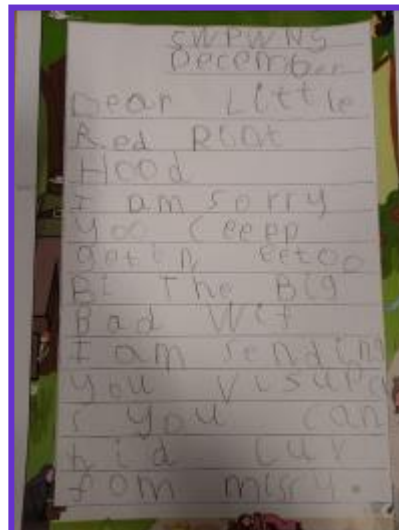 December
Dear Little
Red
Hood
I am sorry
yoo ceeep
getin eetoo
Bi The Big
Bad
I am sending
you
s you can
hid
fom misry.